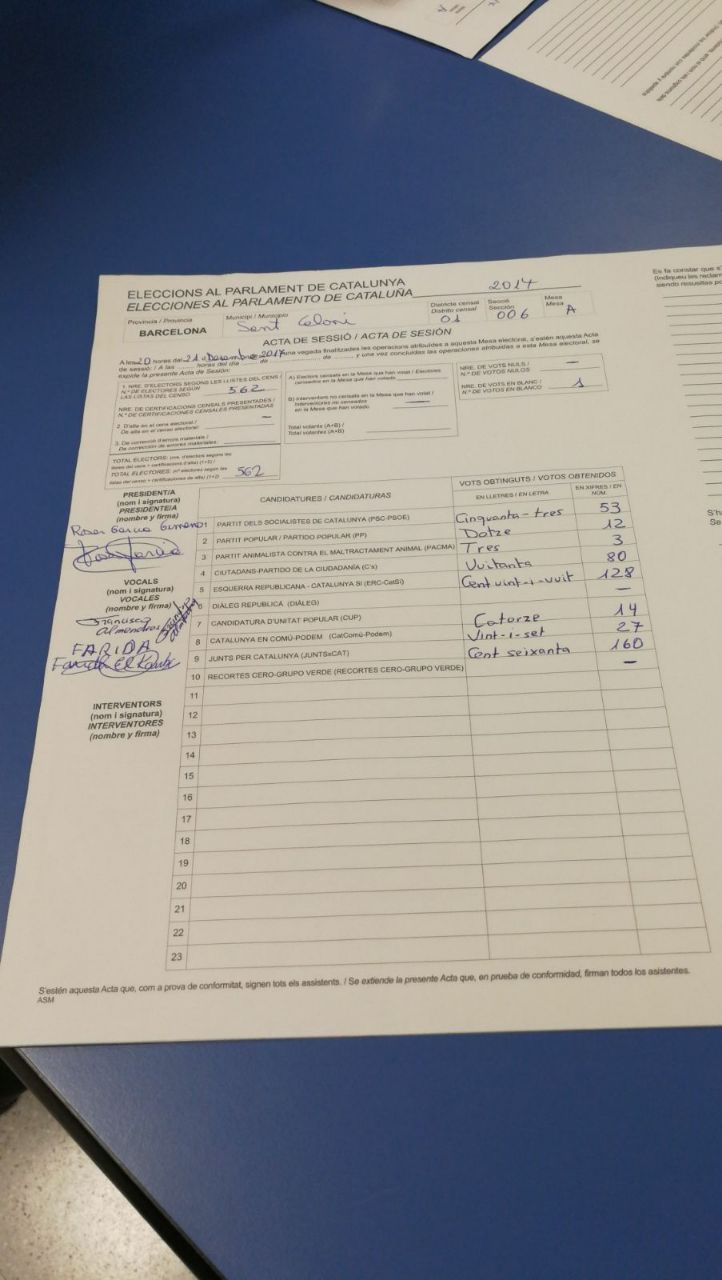 ELECCIONS AL PARLAMENT DE CATALUNYA
ELECCIONES AL PARLAMENTO DE CATALUÑA 2017
Província / Provincia
BARCELONA
Municipi / Municipio
Sant Celoni
Districte censal
Distrito censal
01
Secció
Sección
006
Mesa
Mesa
A
ACTA DE SESSIÓ / ACTA DE SESIÓN
A les 20 hores del 21 d Desembre 2017 una vegada finalitzades les operacions atribuïdes a aquesta Mesa electoral, s'estén aquesta Acta
de sessió: / A las ........ horas del día ........ de ........ de ........ y una vez concluidas las operaciones atribuidas a esta Mesa electoral, se
expide la presente Acta de Sesión:
1. NRE. D'ELECTORS SEGONS LES LLISTES DEL CENS /
N.º DE ELECTORES SEGÚN
LAS LISTAS DEL CENSO 562
NRE. DE CERTIFICACIONS CENSALS PRESENTADES /
N.º DE CERTIFICACIONES CENSALES PRESENTADAS
2. D'alta en el cens electoral /
De alta en el censo electoral: –
3. De correcció d'errors materials /
De corrección de errores materiales:
TOTAL ELECTORS: (nre. d'electors segons les
llistes del cens + certificacions d'alta) (1+2) /
TOTAL ELECTORES: (nº electores según las
listas del censo + certificaciones de alta) (1+2) 562
A) Electors censats en la Mesa que han votat / Electores
censados en la Mesa que han votado
B) Interventors no censats en la Mesa que han votat /
Interventores no censados
en la Mesa que han votado —
Total votants (A+B) /
Total votantes (A+B)
NRE. DE VOTS NULS /
N.º DE VOTOS NULOS —
NRE. DE VOTS EN BLANC /
N.º DE VOTOS EN BLANCO 1
PRESIDENT/A
(nom i signatura)
PRESIDENTE/A
(nombre y firma)
Roser Garcia
VOCALS
(nom i signatura)
VOCALES
(nombre y firma)
Francisco
Almendros
FARIDA
Farida El
INTERVENTORS
(nom i signatura)
INTERVENTORES
(nombre y firma)
CANDIDATURES / CANDIDATURAS
VOTS OBTINGUTS / VOTOS OBTENIDOS
EN LLETRES / EN LETRA
EN XIFRES / EN NÚM.
1 PARTIT DELS SOCIALISTES DE CATALUNYA (PSC-PSOE) Cinquanta-tres 53
2 PARTIT POPULAR / PARTIDO POPULAR (PP) Dotze 12
3 PARTIT ANIMALISTA CONTRA EL MALTRACTAMENT ANIMAL (PACMA) Tres 3
4 CIUTADANS-PARTIDO DE LA CIUDADANÍA (C's) Vuitanta 80
5 ESQUERRA REPUBLICANA - CATALUNYA SÍ (ERC-CatSí) Cent vint-i-vuit 128
6 DIÀLEG REPUBLICÀ (DIÀLEG) –
7 CANDIDATURA D'UNITAT POPULAR (CUP) Catorze 14
8 CATALUNYA EN COMÚ-PODEM (CatComú-Podem) Vint-i-set 27
9 JUNTS PER CATALUNYA (JUNTSxCAT) Cent seixanta 160
10 RECORTES CERO-GRUPO VERDE (RECORTES CERO-GRUPO VERDE) –
11
12
13
14
15
16
17
18
19
20
21
22
23
S'estén aquesta Acta que, com a prova de conformitat, signen tots els assistents. / Se extiende la presente Acta que, en prueba de conformidad, firman todos los asistentes.
ASM
Es fa constar que s'
(Indiqueu les reclam